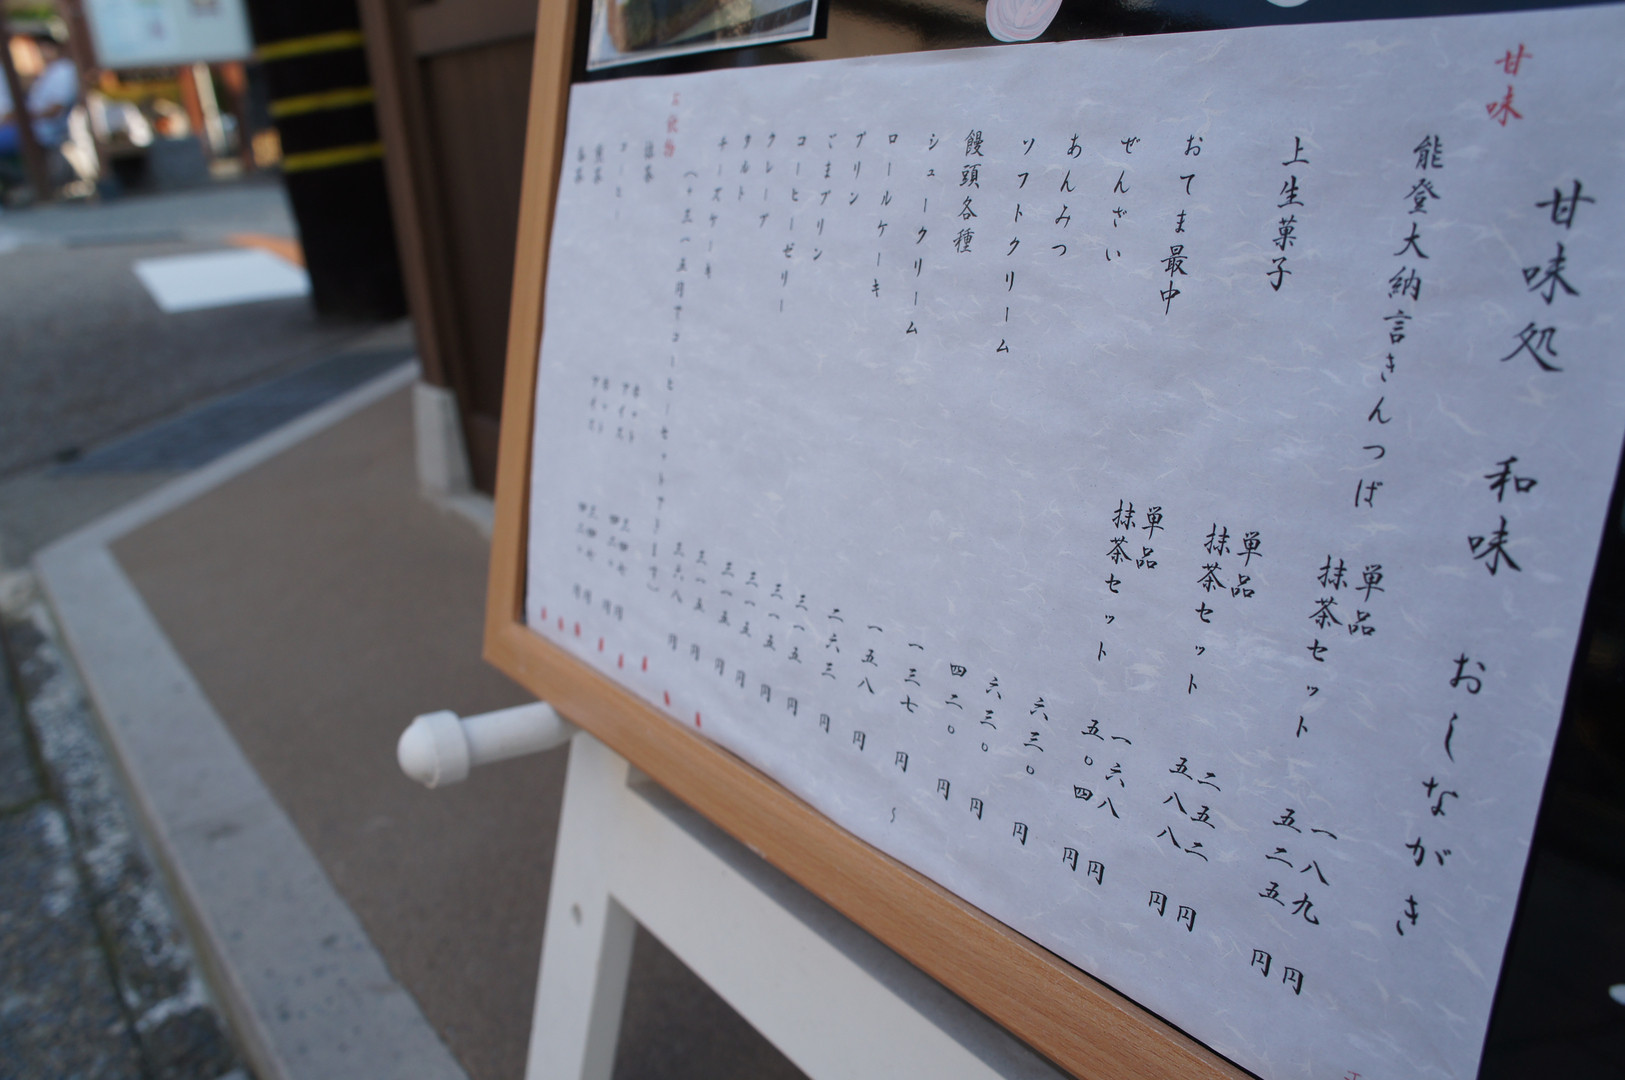 甘味処 和味 おしながき
甘味
能登大納言きんつば 単品 一八九円
抹茶セット 五二五円
上生菓子 単品 二五二円
抹茶セット 五八八円
おてま最中 単品 一六八円
抹茶セット 五〇四円
ぜんざい 六三〇円
あんみつ 六三〇円
ソフトクリーム 四二〇円
饅頭各種 一三七円~
シュークリーム 一五八円
ロールケーキ 二六三円
プリン 三一五円
ごまプリン 三一五円
コーヒーゼリー 三一五円
クレープ 三一五円
タルト 三一五円
チーズケーキ 三六八円
抹茶
コーヒー ホット
アイス
煎茶 ホット
アイス